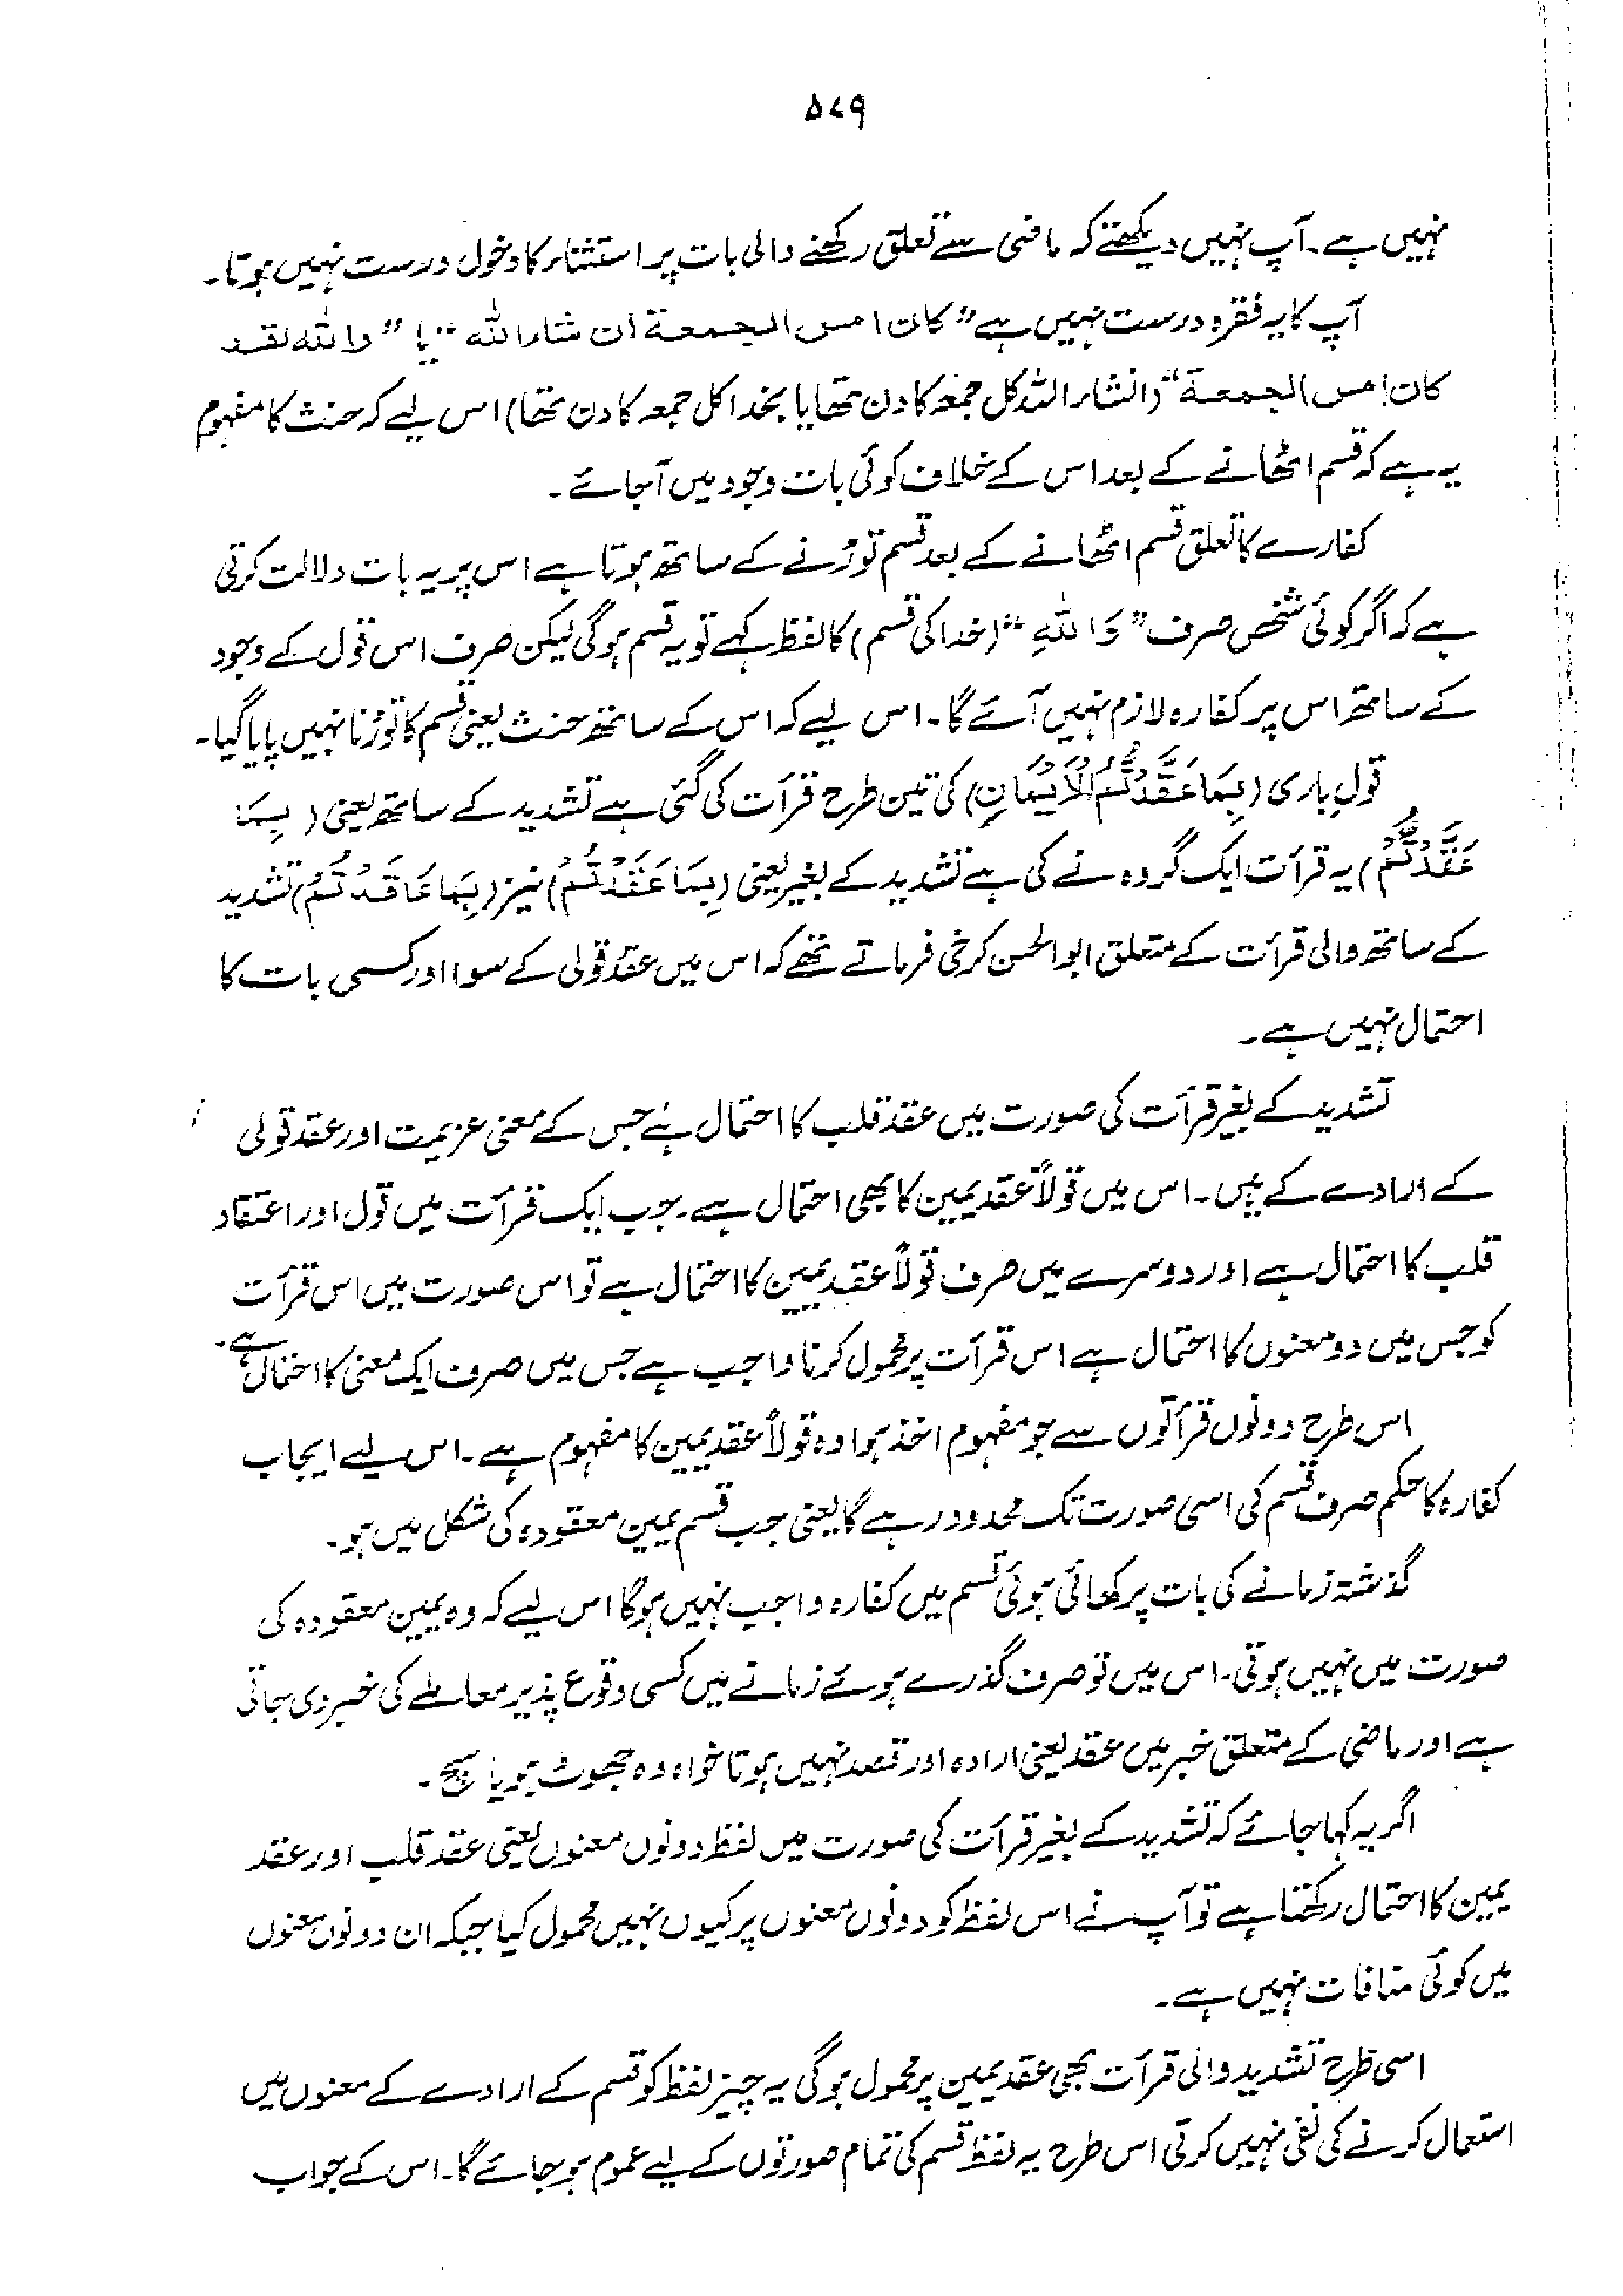 ۵۷۹
نہیں ہے۔ آپ نہیں دیکھتے کہ ماضی سے تعلق رکھنے والی بات پر استثناء کا دخول درست نہیں ہوتا۔
آپ کا یہ فقرہ درست نہیں ہے "کان امس الجمعة ان شاء الله" یا "والله لقد
کان امس الجمعة" (انشاء اللہ کل جمعہ کا دن تھا یا بخدا کل جمعہ کا دن تھا) اس لیے کہ حنث کا مفہوم
یہ ہے کہ قسم اٹھانے کے بعد اس کے خلاف کوئی بات وجود میں آجائے۔
کفارے کا تعلق قسم اٹھانے کے بعد قسم توڑنے کے ساتھ ہوتا ہے اس پر یہ بات دلالت کرتی
ہے کہ اگر کوئی شخص صرف "وَاللهِ" (خدا کی قسم) کا لفظ کہے تو یہ قسم ہوگی لیکن صرف اس قول کے وجود
کے ساتھ اس پر کفارہ لازم نہیں آئے گا۔ اس لیے کہ اس کے ساتھ حنث یعنی قسم کا توڑنا نہیں پایا گیا۔
قولِ باری (بِمَا عَقَّدْتُّمُ الْاَيْمَانِ) کی تین طرح قرأت کی گئی ہے تشدید کے ساتھ یعنی (بِمَا
عَقَّدْتُّمْ) یہ قرأت ایک گروہ نے کی ہے تشدید کے بغیر یعنی (بِمَا عَقَدْتُمْ) نیز (بِمَا عَاقَدْتُمْ) تشدید
کے ساتھ والی قرأت کے متعلق ابوالحسن کرخی فرماتے تھے کہ اس میں عقد قولی کے سوا اور کسی بات کا
احتمال نہیں ہے۔
تشدید کے بغیر قرأت کی صورت میں عقد قلب کا احتمال ہے جس کے معنی عزیمت اور عقد قولی
کے ارادے کے ہیں۔ اس میں قولاً عقد یمین کا بھی احتمال ہے۔ جب ایک قرأت میں قول اور اعتقاد
قلب کا احتمال ہے اور دوسرے میں صرف قولاً عقد یمین کا احتمال ہے تو اس صورت میں اس قرأت
کو جس میں دو معنوں کا احتمال ہے اس قرأت پر محمول کرنا واجب ہے جس میں صرف ایک معنی کا احتمال ہے۔
اس طرح دونوں قرأتوں سے جو مفہوم اخذ ہوا وہ قولاً عقد یمین کا مفہوم ہے۔ اس لیے ایجاب
کفارہ کا حکم صرف قسم کی اسی صورت تک محدود رہے گا یعنی جب قسم یمین معقودہ کی شکل میں ہو۔
گذشتہ زمانے کی بات پر کھائی ہوئی قسم میں کفارہ واجب نہیں ہوگا اس لیے کہ وہ یمین معقودہ کی
صورت میں نہیں ہوتی۔ اس میں تو صرف گذرے ہوئے زمانے میں کسی وقوع پذیر معاملے کی خبر دی جاتی
ہے اور ماضی کے متعلق خبر میں عقد یعنی ارادہ اور قصد نہیں ہوتا خواہ وہ جھوٹ ہو یا سچ۔
اگر یہ کہا جائے کہ تشدید کے بغیر قرأت کی صورت میں لفظ دونوں معنوں یعنی عقد قلب اور عقد
یمین کا احتمال رکھتا ہے تو آپ نے اس لفظ کو دونوں معنوں پر کیوں نہیں محمول کیا جبکہ ان دونوں معنوں
میں کوئی منافات نہیں ہے۔
اسی طرح تشدید والی قرأت بھی عقد یمین پر محمول ہوگی یہ چیز لفظ کو قسم کے ارادے کے معنوں میں
استعمال کرنے کی نفی نہیں کرتی اس طرح یہ لفظ قسم کی تمام صورتوں کے لیے عموم ہو جائے گا۔ اس کے جواب